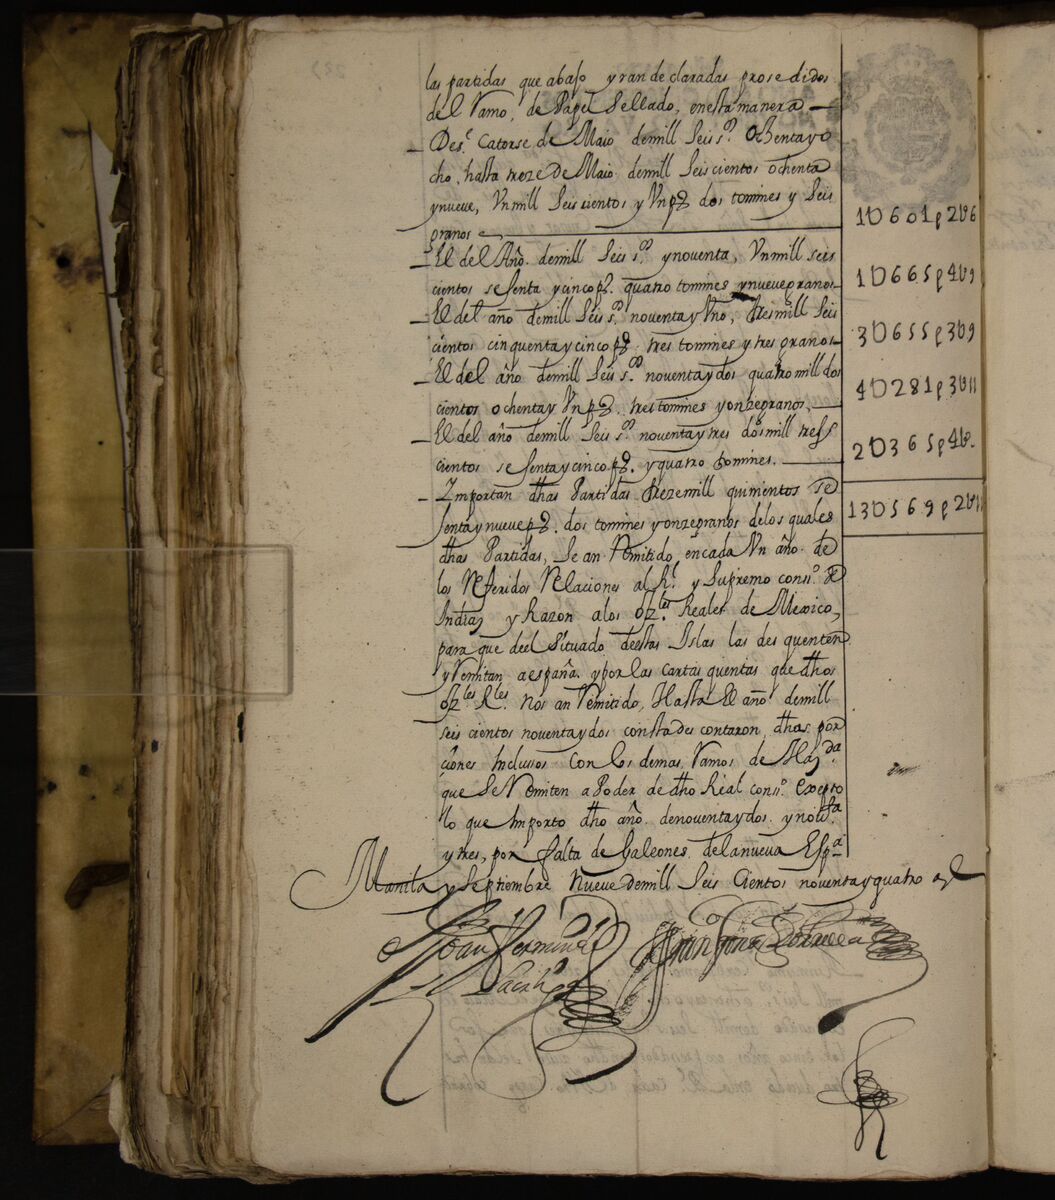 las partidas que abajo yran declaradas prosedidos
del Ramo, de Papel Sellado, en esta manera —
— Des.e Catorse de Maio demill Seis s.os Ochentayo
cho, hasta treze de Maio demill Seiscientos ochenta
ynueve, Vnmill Seiscientos y Vnps dos tomines y Seis
granos — 1U601p2t6
— El del Año. demill Seis s.os ynoventa, Vnmill seis
cientos sesenta ycincops. quatro tomines ynuevegranos— 1U665p4t9
— El del año demill Seis s.os noventay Vno, tresmill Seis
cientos cinquentaycincops tres tomines y tres granos— 3U655p3t9
— El del año demill Seis s.os noventaydos quatro mill dos
cientos ochentay Vnps. tres tomines yonzegranos,— 4U281p3t11
— El del año demill Seis s.os noventaytres dosmill tress
cientos sesentaycincops. yquatro tomines. — 2U365p4t.
— Ymportan dhas Partidas trezemill quinientos se
sentaynueveps. dos tomines yonzegranos delos quales 13U569p2t11
dhas Partidas, Se an Remitido, encada Vn año de
los Referidos Relaciones al Rl. y Supremo cons.o de
Indias y Razon alos ofz.les Reales de Mexico,
para que del Situado destas Islas las desquenten
y Remitan aespaña. yporlas cartas quentas que dhos
ofz.les R.les nos an Remitido, Hasta El año demill
seis cientos noventaydos consta descontaron, dhas por
ciones Inclusos Con los demas Ramos de Haz.da
que Se Remiten a Poder de dho Real cons.o excepto
lo que Importo dho año denoventaydos
ytres, por falta de Galeones delanueva Esp.a
Manila y Septiembre Nueve demill Seis Cientos noventayquatro as